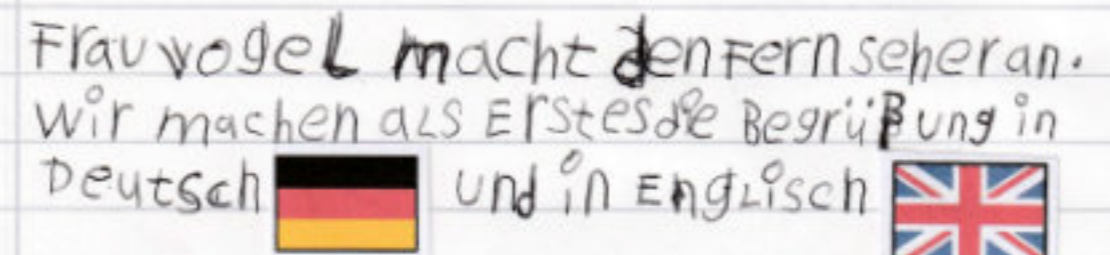 Frau vogel macht den Fernseher an.
Wir machen als Erstes die Begrüßung in
Deutsch und in Englisch